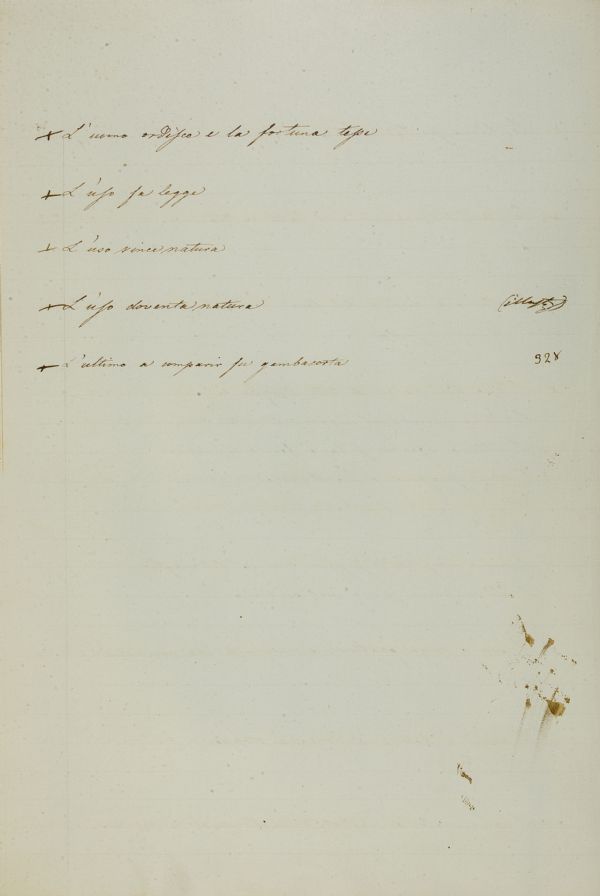 + L'uomo ordisce e la fortuna tesse
+ L'uso fa legge
+ L'uso vince natura
+ L'uso doventa natura
+ L'ultimo a comparir fu gambacorta 328